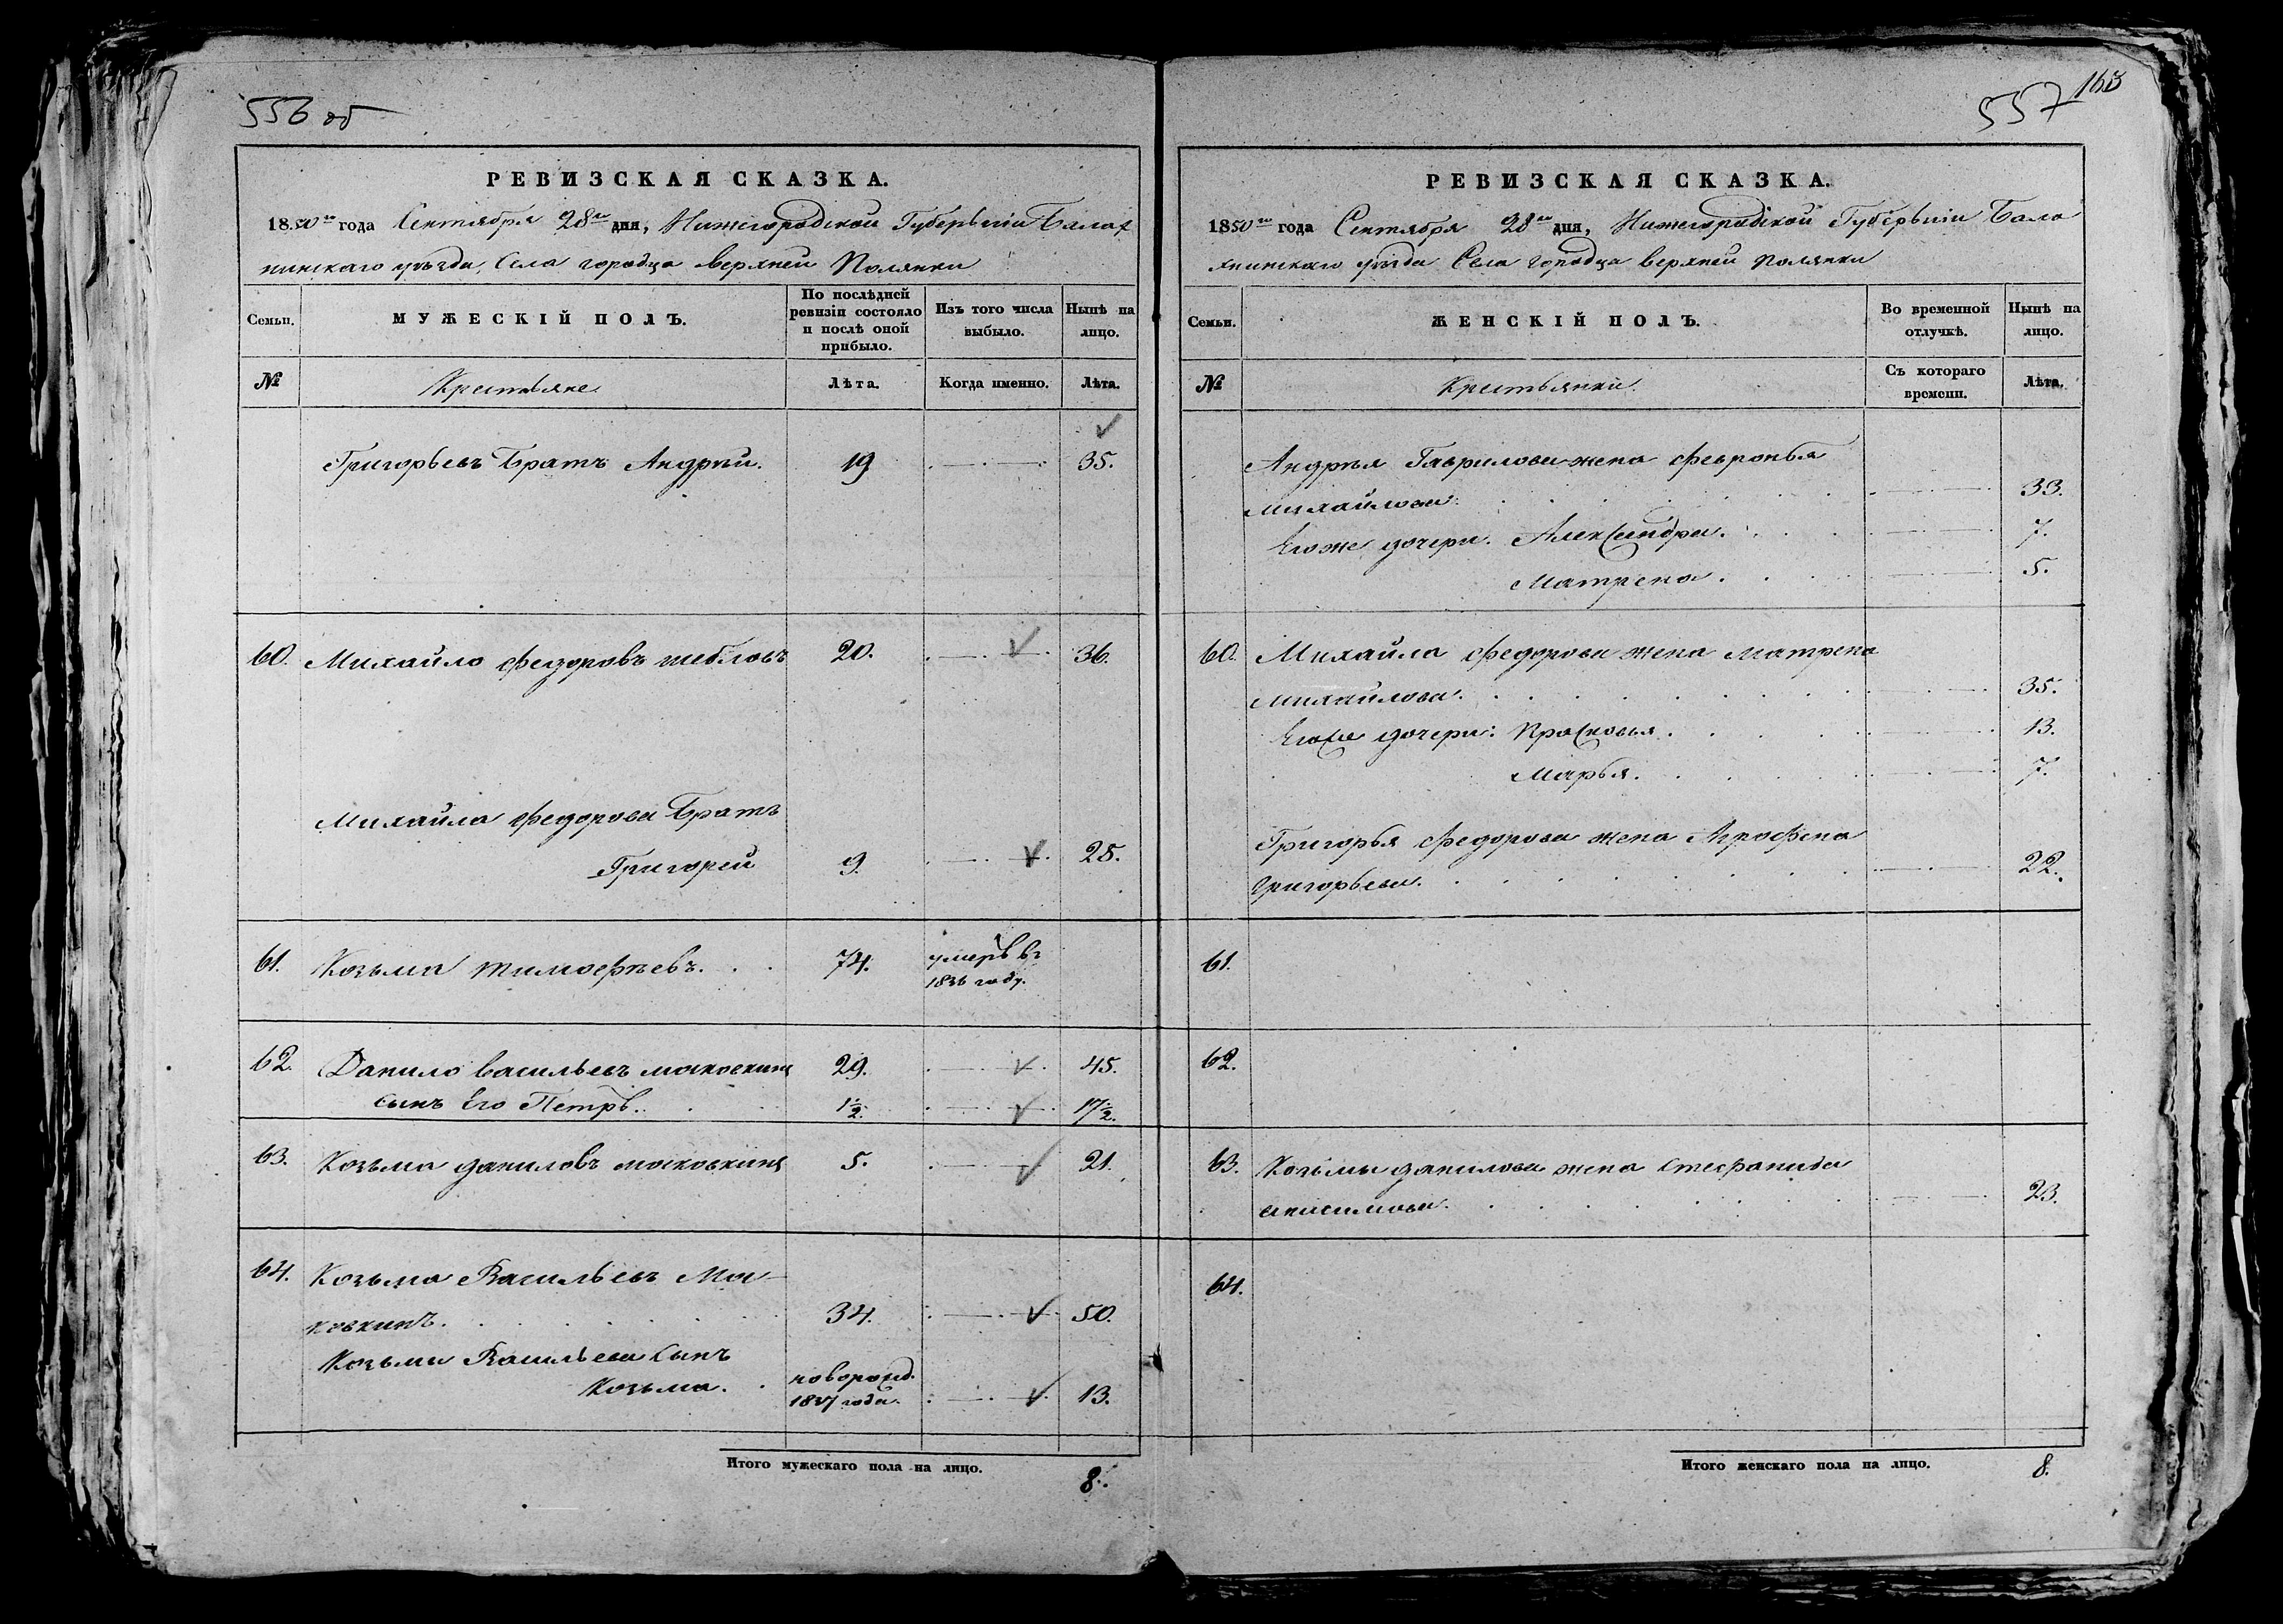 556 об
РЕВИЗСКАЯ СКАЗКА.
1850го года Сентября 28го дня, Нижегородской Губерьніи Балах
нинскаго уѣзда, Села городца верхней Полянки
Семьи.
МУЖЕСКІЙ ПОЛЪ.
По послѣдней ревизіи состояло и послѣ оной прибыло.
Изъ того числа выбыло.
Нынѣ на лицо.
№
Крестьяне
Лѣта.
Когда именно.
Лѣта.
Григорьевъ Братъ Андрей. 19 35.
60. Михайло федоровъ шебловъ 20. 36.
Михайла федорова Братъ
Григорей 9. 25.
61. Козьма тимофѣевъ. 74. умеръ въ
1836 году.
62. Данило васильевъ московкинъ 29. 45.
сынъ Его Петръ. 1½. 17½.
63. Козьма даниловъ московкинъ 5. 21.
64. Козьма Васильевъ Мос-
ковкинъ. 34. 50.
Козьмы Васильева сынъ новорожд.
Козьма. 1837 года. 13.
Итого мужескаго пола на лицо. 8.
163
557
РЕВИЗСКАЯ СКАЗКА.
1850го года Сентября 28го дня, Нижегородской Губерьніи Бала
хнинскаго уѣзда Села городца верхней полянки
Семьи.
ЖЕНСКІЙ ПОЛЪ.
Во временной отлучкѣ.
Нынѣ на лицо.
№
Крестьянки.
Съ котораго времени.
Лѣта.
Андрея Гаврилова жена февронья
михайлова. 33.
Егоже дочери. Александра. 7.
Матрена. 5.
60. Михайла федорова жена матрена
михайлова. 35.
Егоже дочери: Прасковья. 13.
Марья. 7.
Григорья федорова жена Агрофена
григорьева. 22.
61.
62.
63. Козьмы данилова жена стефанида
анисимова. 23.
64.
Итого женскаго пола на лицо. 8.